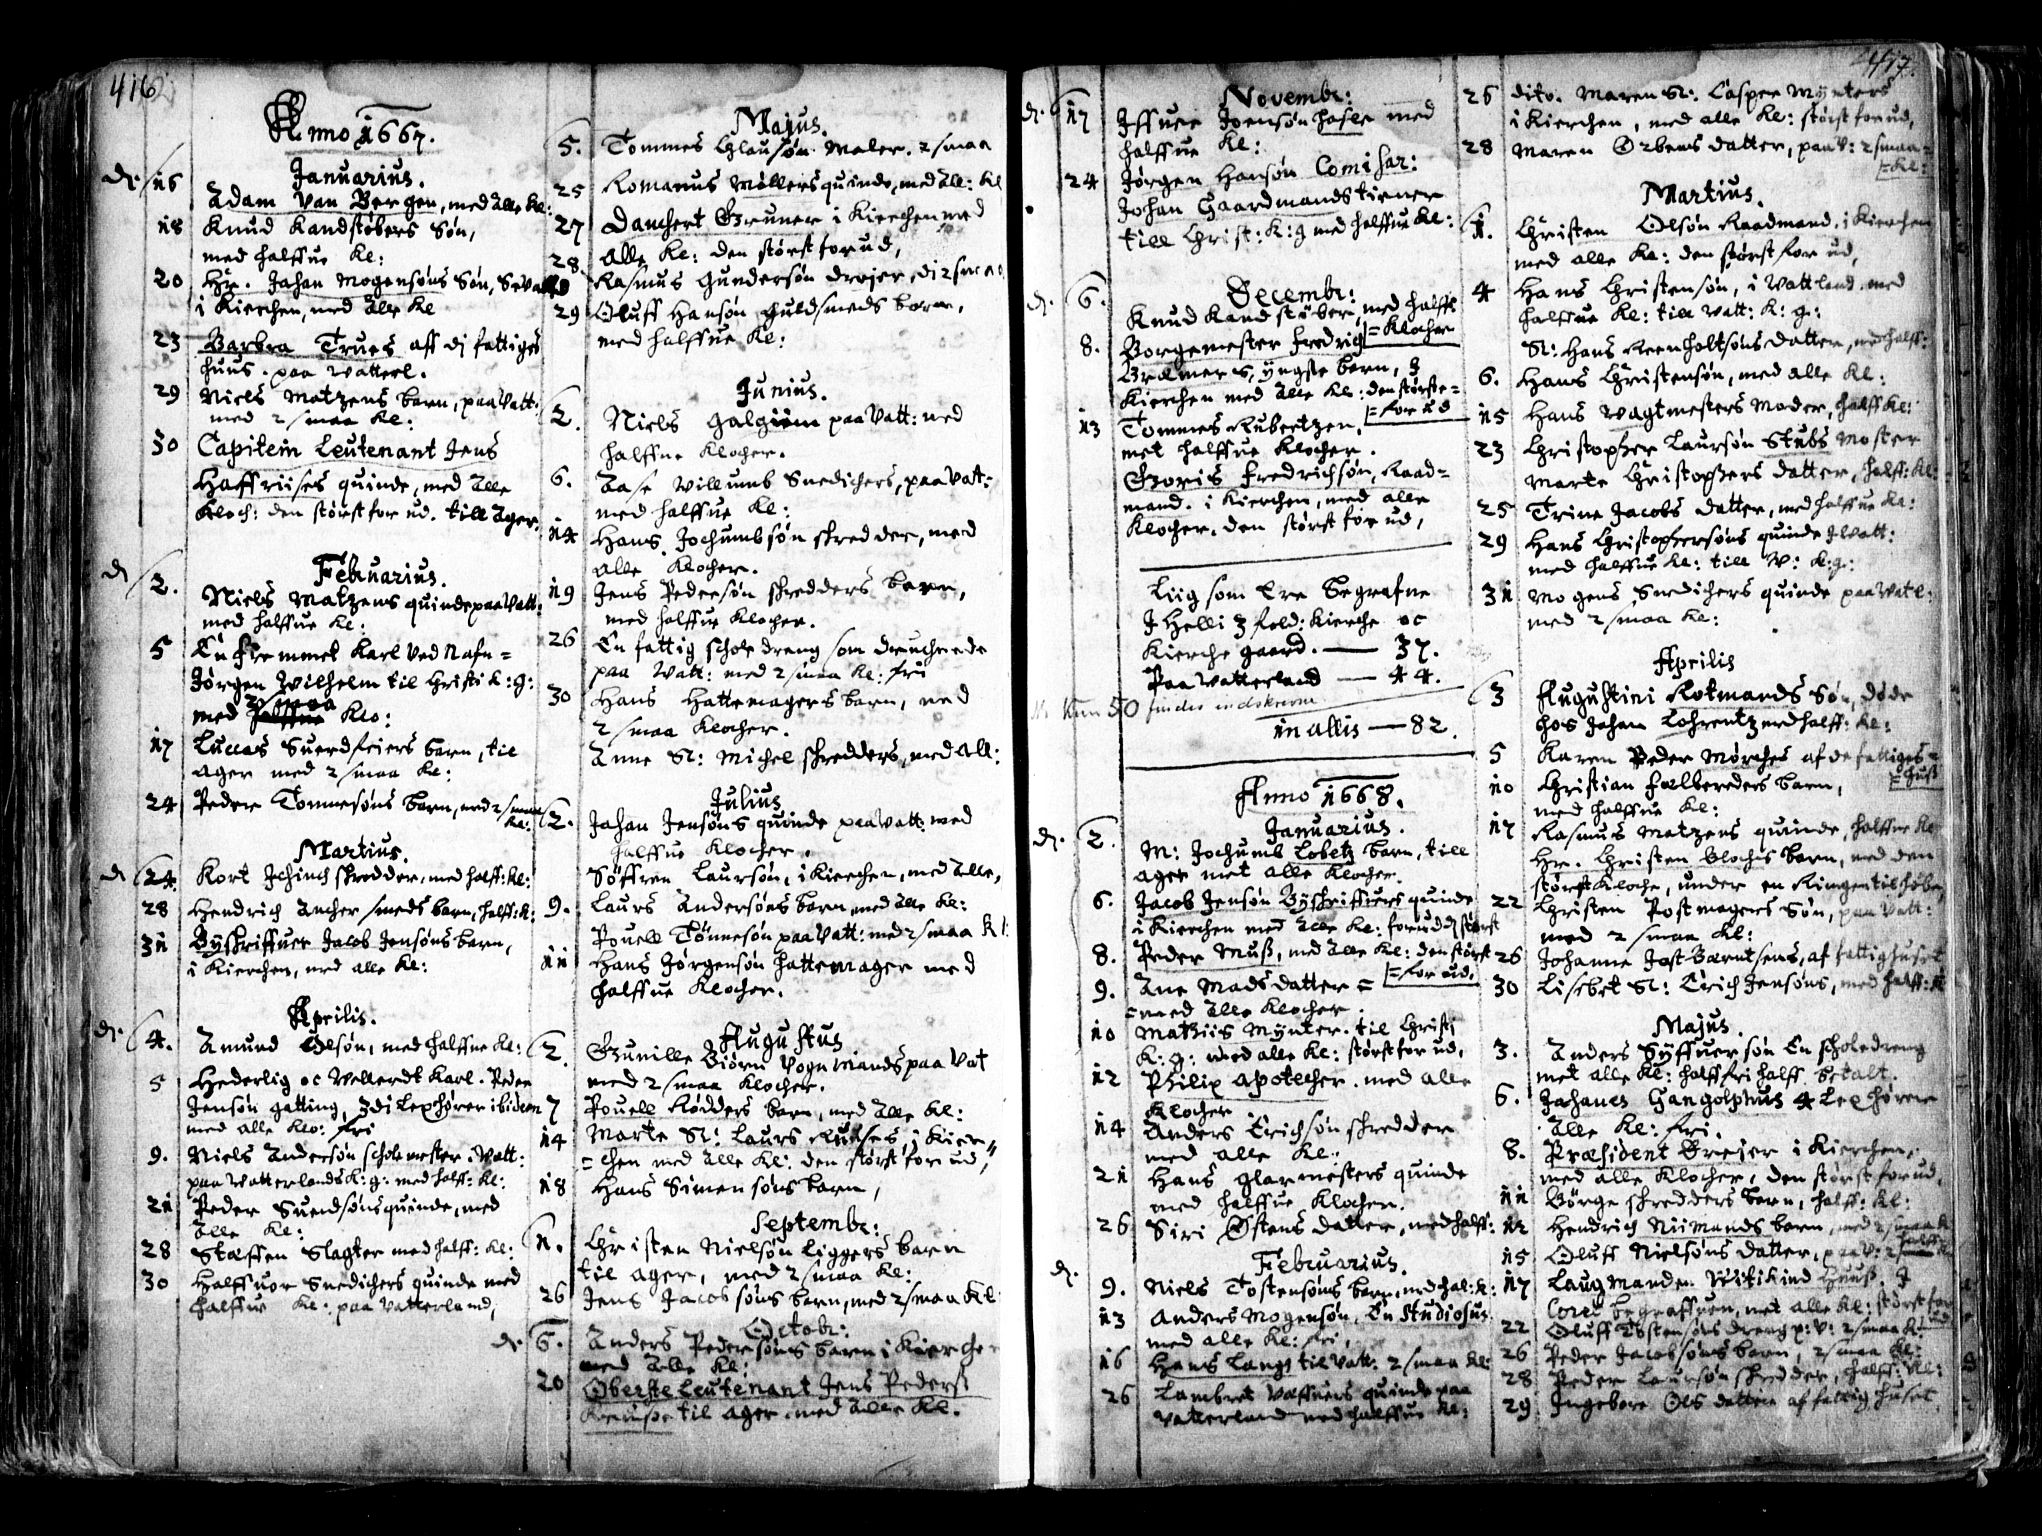 416
Anno 1667.
Januarius.
16 Adam Van Bergen, med Alle Kl:
18 Knud Kandstøbers Søn,
med halffue Kl:
20 Hr. Johan Mogensøns Søn,
i Kirchen, med Alle Kl
23 Barbra Trues aff dj fattiges
huus. paa Watterl.
29 Niels Matzens barn, paa Vatt:
med 2 smaa Kl:
30 Capitein Leutenant Jens
Haffriises quinde, med Alle
Kloch: den størst for ud. till Ager.
Februarius.
2. Niels Matzens quinde paa Vatt:
med halffue Kl:
5 En fremmet Karl ved Nafn =
Jørgen Wilhelm til Christi K: g:
med 2 smaa Klo:
17 Luccas Suerdfeiers barn, til
Ager med 2 smaa Kl:
24 Peder Tommesøns barn, med 2 smaa
Kl:
Martius.
24 Kort skredder, med halff: Kl:
28 Hendrich Ancher smeds barn, halff: K:
31 Byskriffuer Jacob Jensøns barn,
i Kierchen, med alle Kl:
Aprilis.
4. Amund Olsøn, med halffue Kl:
5 Hederlig oc Vellerdt Karl. Peder
Jensøn gatting, 3di Lex hører ibidem
med alle Klo: fri
9. Niels Andersøn scholemester i Vatt:
paa Watterlands K: g: med halff: Kl:
21 Peder Suendsøns quinde, med
Alle Kl:
28 Staffen Slagter med halff: Kl:
30 Halffuor Snedichers quinde med
halffue Kl: paa Vatterland,
Majus.
5. Tommes Clausøn Maler. 2 smaa
25 Romanus Møllers quinde, med All: Kl
27 Danchert Gruner i Kierchen med
Alle Kl: den størst for ud,
28 Rasmus Gundersøn drajer,
29 Oluff Hansøn Guldsmeds barn,
med halffue Kl:
Junius.
2. Niels paa Vatt: med
halffue Klocher.
6. Aase Willumb Snedichers, paa Vatt:
med halffue Kl:
14 Hans Jochumbsøn skredder, med
alle Klocher.
19 Jens Pedersøn skredders barn,
med halffue Klocher.
26 En fattig schole dreng som druchnede
paa Vatt: med 2 smaa Kl: fri
30 Hans Hattemagers barn, med
2 smaa Klocher.
Anne Sl: Michel skredders, med All:
Julius
2. Johan Jensøns quinde paa Vatt: med
halffue Klocher.
Søffren Laursøn, i Kierchen, med Alle,
9. Laurs Andersøns barn med Alle Kl:
Pouell Tønnesøn paa Vatt: med 2 smaa Kl:
11 Hans Jørgensøn hattemager med
halffue Klocher.
Augustus
2. Gunille Biørn Vognmands paa Vat
med 2 smaa Klocher.
7 Pouell Rødders barn, med Alle Kl:
14 Marte Sl: Laurs Ruuses, i Kier=
=chen med Alle Kl: den størst for ud,
18 Hans Simensøns barn,
Septembr:
1. Christen Nielsøn Liggers barn
til ager, med 2 smaa Kl:
26 Jens Jacobsøns barn, med 2 smaa Kl:
Octobr:
6. Anders Pedersøns barn i Kierchen
med Alle Kl:
20 Oberste Leutenant Jens Pederss
Kruuse til ager. med Alle Kl.
417.
Novembr:
17 Iffuer Joensøn med
halffue Kl:
24 Jørgen Hansøn Comisar:
Johan Gaardmands tienere
till Christ: K: g med halffue Kl:
Decembr:
6. Knud Kandstøber med halffe
=Klocher
8. Borgemester Fredrig
Bræmers, yngste barn, I
Kierchen med Alle Kl: den største=
=for ud
13 Tommes Rubertzen,
met halffue Klocher.
Gioris Fredrichsøn, Raad=
mand. i Kierchen, med alle
Klocher. den størst for ud,
Liig som Ere begrafne
I Hellig 3 fold: Kierche oc
Kierche gaard. — 37.
Paa Watterland — 44.
Kun 50 findes indskreven
in allis — 82.
Anno 1668.
Januarius.
2. M: Jochumb Lobetz barn, till
ager met alle Klocher.
6. Jacob Jensøn Byskriffuers quinde
i Kierchen med Alle Kl: for ud d størst
8. Peder Muss, med Alle Kl: den størst
=for ud.
9. Ane Mads datter =
=med Alle Klocher.
10 Mathiis Mynter. til Christi
K: g: med alle Kl: størst for ud,
12 Philip Apotecher. med alle
Klocher
14 Anders Erichsøn skredder
med alle Kl:
21 Hans glarmesters quinde
med halffue Klocher.
26 Siri Østens datter, med halff:
Februarius.
9. Niels Tostensøns barn, med hal: K:
13 Anders Mogensøn, En Studiosus
med alle Kl: fri,
16 Hans Lang til Vatt: 2 smaa Kl:
26 Lambret Vaffuers quinde paa
Vatterland med halffue Kl:
26 dito. Maren Sl: Casper Mynters
i Kierchen, med alle Kl: størst for ud,
28 Maren Orbens datter, paa V: 2 smaa=
=Kl:
Martius.
1. Christen Olsøn Raadmand. i Kierchen
med alle Kl: den størst for ud,
4 Hans Christensøn, i Vattland. med
halffue Kl: till Vatt: K: g:
Sl: Hans Reenholtsøns datter, med halff:
6. Hans Christensøn, med alle Kl:
15 Hans Vagtmesters Moder, halff Kl:
23 Christopfer Laursøn Stubs Moster
Marte Christopfers datter, halff: Kl:
25 Trine Jacobs datter, med halffue Kl:
29 Hans Christopfersøns quinde i Vatt:
med halffue Kl: till V: K: g:
31 Mogens Snedichers quinde paa Vatl:
med 2 smaa Kl:
Aprilis
3 Augustini Rotmands Søn, døde
hos Johan Lohrentz med halff: Kl:
5 Karen Peder Mørches af de fattiges=
=huss
10 Christian Felbereders barn,
med halffue Kl:
17 Rasmus Matzens quinde, halffue Kl
Hr. Christen Blochs barn, med den
størst Kloche, under en Ringen til høbe,
22 Christen Postmagers Søn, paa Vatt:
med 2 smaa Kl:
26 Johanne Jost Barntsens, af fattighuset
30 Lisebet Sl: Erich Jensøns, med halff: K
Majus.
3. Anders Syffuersøn En scholedreng
met alle Kl: halff fri halff betalt.
6. Johanes Gangolphius 4 Lex hører
Alle Kl: fri.
8. Præsident Dreier i Kierchen,
med alle Klocher, den størst for ud,
11 Børge skredders barn, halff: Kl:
12 Hendrich Niimands barn, med 2 smaa K
15 Oluff Nielsøns datter, paa V: 2 smaa K
17 Laugmanden Witikind Huuss. I
Coret begraffuen, met alle Kl: størst for
ud
22 Oluff Tostensøns dreng p: V: 2 smaa K:
26 Peder Jacobsøns barn, 2 smaa Kl:
28 Peder Laursøn skredder, halff: Kl:
29 Ingebore Ols datter af fattighuset.